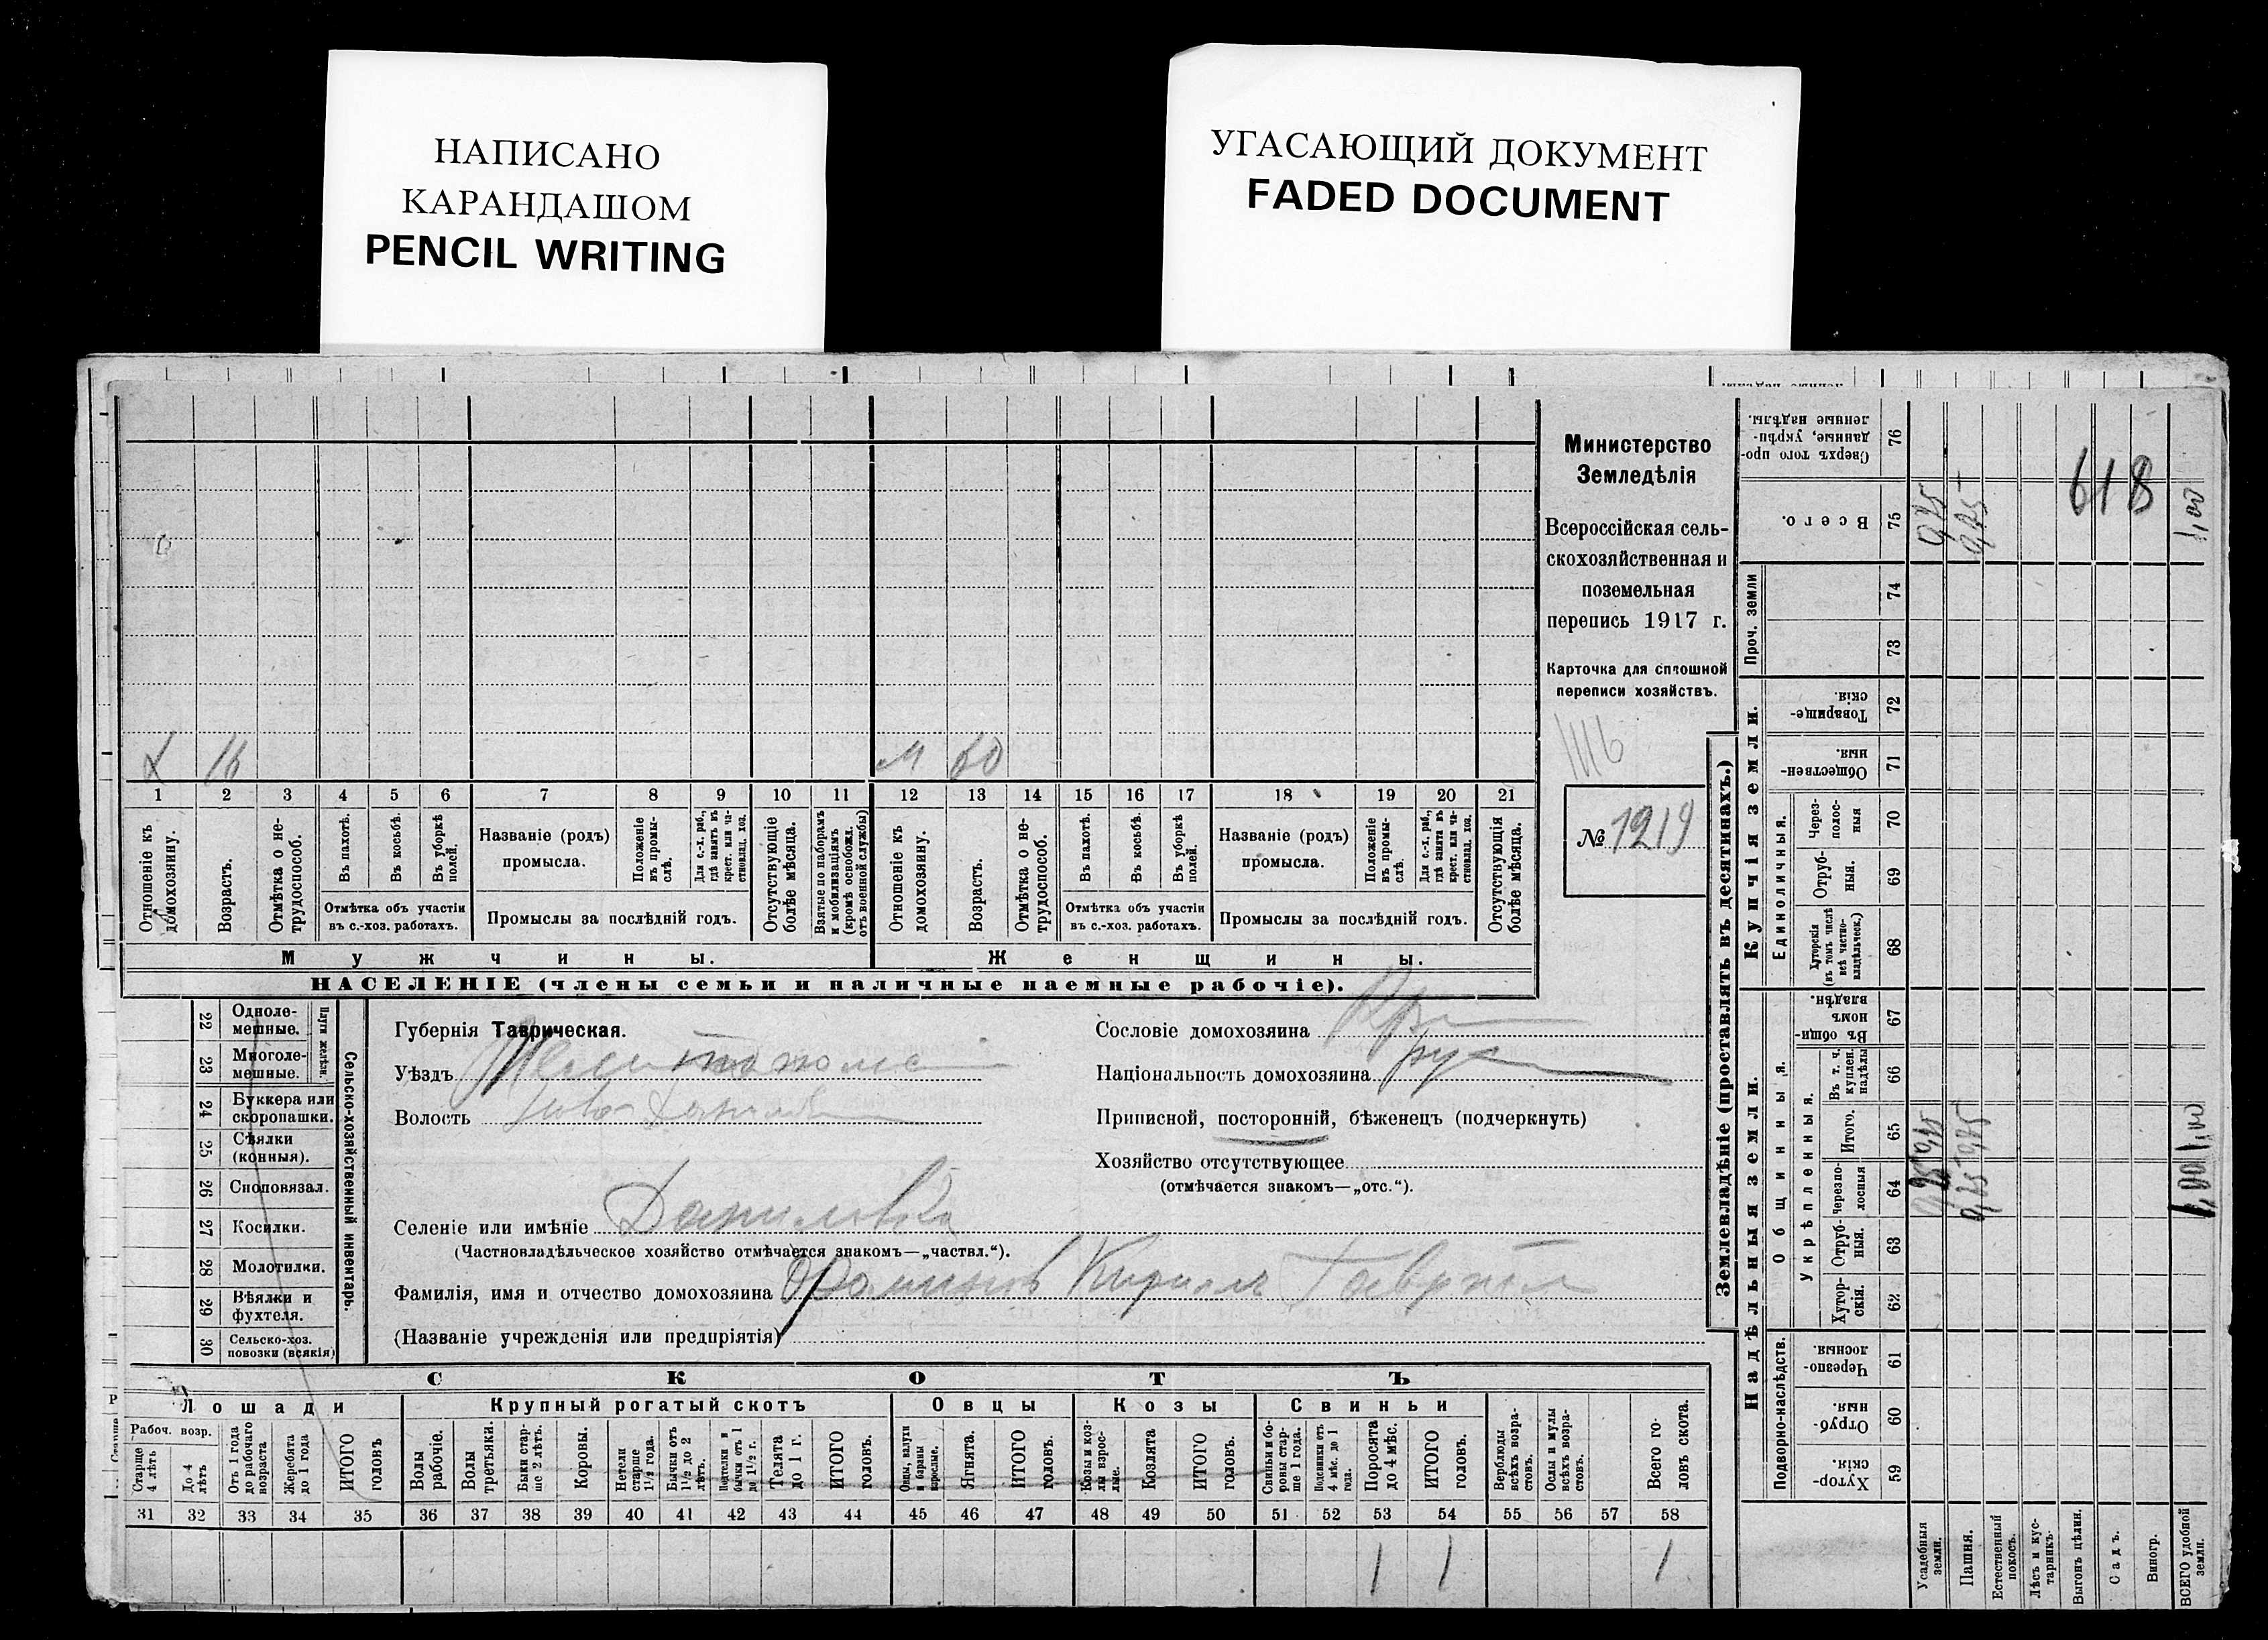 НАПИСАНО
КАРАНДАШОМ
PENCIL WRITING
УГАСАЮЩИЙ ДОКУМЕНТ
FADED DOCUMENT
Министерство
Земледѣлія
Всероссійская сель-
скохозяйственная и
поземельная
перепись 1917 г.
Карточка для сплошной
переписи хозяйствъ.
1116
№ 1219
Х 16
М 60
1 2 3 4 5 6 7 8 9 10 11 12 13 14 15 16 17 18 19 20 21
Отношеніе къ домохозяину.
Возрастъ.
Отмѣтка о не-трудоспособ.
Въ пахотѣ.
Въ косьбѣ.
Въ уборкѣ полей.
Отмѣтка объ участіи
въ с.-хоз. работахъ.
Названіе (родъ)
промысла.
Положеніе въ промы-слѣ.
Для с.-х. раб., гдѣ занятъ въ крест. или ча-стновлад. хоз.
Промыслы за послѣдній годъ.
Отсутствующіе болѣе мѣсяца.
Взятые по наборамъ и мобилизаціямъ (кромѣ освобожд. отъ военной службы)
Отношеніе къ домохозяину.
Возрастъ.
Отмѣтка о не-трудоспособ.
Въ пахотѣ.
Въ косьбѣ.
Въ уборкѣ полей.
Отмѣтка объ участіи
въ с.-хоз. работахъ.
Названіе (родъ)
промысла.
Положеніе въ промы-слѣ.
Для с.-х. раб., гдѣ занята въ крест. или ча-стновлад. хоз.
Промыслы за послѣдній годъ.
Отсутствующія болѣе мѣсяца.
Мужчины.
Женщины.
НАСЕЛЕНІЕ (члены семьи и наличные наемные рабочіе).
22 Одноле-мешные.
23 Многоле-мешные.
24 Буккера или скоропашки.
25 Сѣялки (конныя).
26 Сноповязал.
27 Косилки.
28 Молотилки.
29 Вѣялки и фухтеля.
30 Сельско-хоз. повозки (всякія)
Плуги желѣз.
Сельско-хозяйственный инвентарь.
Губернія Таврическая.
Уѣздъ
Волость
Селеніе или имѣніе Даниловка
(Частновладѣльческое хозяйство отмѣчается знакомъ—„частвл.“).
Фамилія, имя и отчество домохозяина Кирилъ Гаврил
(Названіе учрежденія или предпріятія)
Сословіе домохозяина
Національность домохозяина рус
Приписной, посторонній, бѣженецъ (подчеркнуть)
Хозяйство отсутствующее
(отмѣчается знакомъ—„отс.“).
СКОТЪ
Лошади
Крупный рогатый скотъ
Овцы
Козы
Свиньи
Рабоч. возр.
Старше 4 лѣтъ
До 4 лѣтъ
Отъ 1 года до рабочаго возраста
Жеребята до 1 года
ИТОГО головъ
Волы рабочіе.
Волы третьяки.
Быки стар-ше 2 лѣтъ.
Коровы.
Нетели старше 1½ года.
Бычки отъ 1½ до 2 лѣтъ.
Нетелки и бычки отъ 1 до 1½ г.
Телята до 1 г.
ИТОГО головъ.
Овцы, валухи и бараны взрослые.
Ягнята.
ИТОГО головъ.
Козы и коз-лы взрос-лые.
Козлята
ИТОГО головъ.
Свиньи и бо-ровы стар-ше 1 года.
Подсвинки отъ 4 мѣс. до 1 года.
Поросята до 4 мѣс.
ИТОГО головъ.
Верблюды всѣхъ возра-стовъ.
Ослы и мулы всѣхъ возра-стовъ.
Всего го-ловъ скота.
31 32 33 34 35 36 37 38 39 40 41 42 43 44 45 46 47 48 49 50 51 52 53 54 55 56 57 58
1 1 1
Землевладѣніе (проставлять въ десятинахъ.)
Надѣльныя земли.
Купчія земли.
Проч. земли
Подворно-наслѣдств.
Общинныя.
Укрѣпленныя.
Единоличныя.
Хутор-скія. 59
Отруб-ныя. 60
Черезпо-лосныя 61
Хутор-скія. 62
Отруб-ныя. 63
черезпо-лосныя 64
Итого. 65
Въ т. ч. куплен. надѣлы 66
Въ общин-номъ владѣн. 67
Хуторскія (въ томъ числѣ всѣ частно-владѣльческ.) 68
Отруб-ныя. 69
Через-полос-ныя 70
Обществен-ныя. 71
Товарище-скія. 72
73
74
Всего. 75
Сверхъ того про-данные, укрѣп-ленные надѣлы. 76
618
Усадебныя земли.
Пашня.
Естественный покосъ.
Лѣсъ и кус-тарникъ.
Выгонъ цѣлин.
Садъ.
Виногр.
ВСЕГО удобной земли.
0,25
0,75
1,00